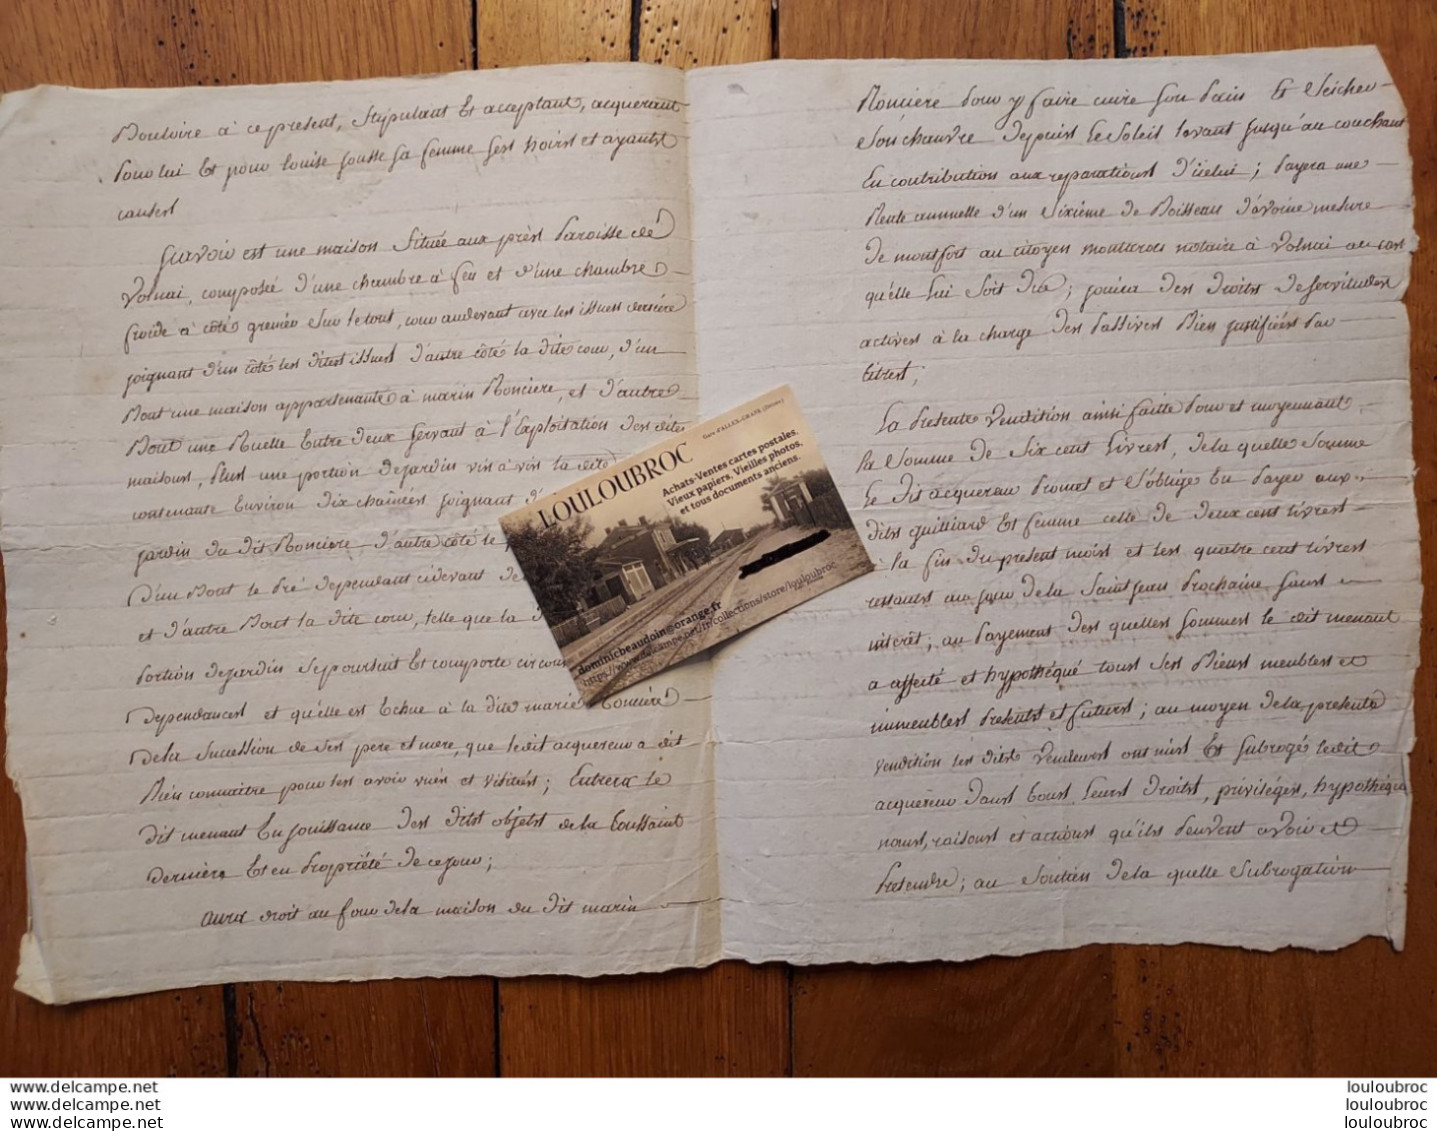 Bouloire à ce present, stipulant et acceptant, acquerant
pour lui et pour Louise Gousse sa femme ses hoirs et ayants
causes
Sçavoir est une maison située aux près paroisse de
Volnai, composée d'une chambre à feu et d'une chambre
froide à côté, grenier sur le tout, cour au devant avec les issues derriere
joignant d'un côté les dites issues d'autre côté la dite cour, d'un
bout une maison appartenante à marin Ronciere, et d'autre
bout une Ruelle entre deux servant à l'Exploitation des dites
maisons, plus une portion de jardin vis à vis la dite
contenante Environ dix chaînées joignant d'
jardin du dit Ronciere d'autre côté le
d'un bout le Pré dependant cidevant de
et d'autre bout la dite cour, telle que la d
portion de jardin se poursuit et comporte circon
dependances et qu'elle est Echue à la dite marie Ronciere
de la succession de ses pere et mere, que le dit acquereur a dit
bien connaitre pour les avoir vues et visitées; Entrera le
dit menant En jouissance des dits objets de la Toussaint
derniere et en propriété de ce jour;
aura droit au four de la maison du dit marin
Ronciere pour y faire cuire son pain et seicher
son chanvre depuis le soleil levant jusqu'au couchant
En contribution aux reparations d'icelui; payera une
Rente annuelle d'un sixieme de Boisseau d'avoine mesure
de montfort au citoyen notaire à Volnai au cas
qu'elle lui soit due; jouira des droits de servitudes
actives à la charge des passives bien justifiées par
titres;
La presente vendition ainsi faitte pour et moyennant
la somme de six cent livres, de la quelle somme
le dit acquereur promet et s'oblige En payer aux
dits guilliard et femme celle de deux cent livres
à la fin du present mois et les quatre cent livres
restants au jour de la Saint Jean prochaine sans
interêt; au payement des quelles sommes le dit menant
a affecté et hypothéqué tous ses Biens meubles et
immeubles presents et futurs; au moyen de la presente
vendition les dits vendeurs ont mis et subrogé le dit
acquereur dans tous leurs droits, priviléges, hypothéques
noms, raisons et actions qu'ils peuvent avoir et
pretendre; au soutien de la quelle subrogation
Gare d'ALLEX-GRANE (Drôme)
LOULOUBROC
Achats-Ventes cartes postales.
Vieux papiers. Vieilles photos.
et tous documents anciens.
dominicbeaudoin@orange.fr
https://www.delcampe.net/fr/collections/store/louloubroc
delcampe.net louloubroc
delcampe.net louloubroc
delcampe.net louloubroc